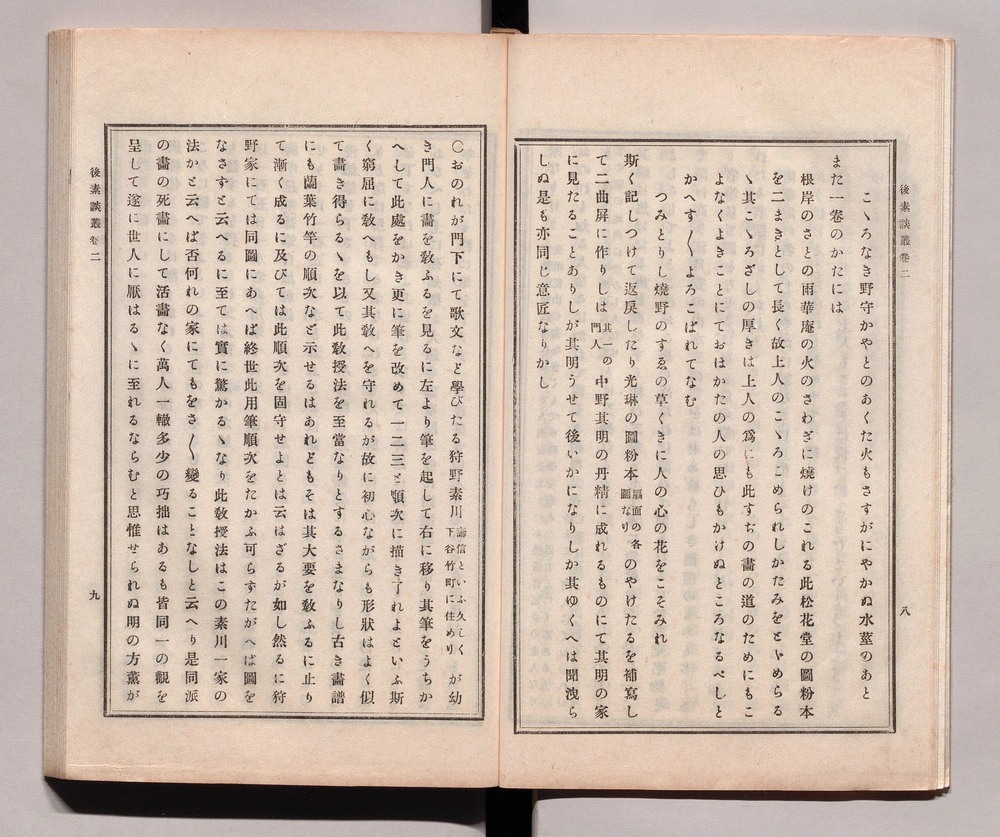 後素談叢卷二
八
こゝろなき野守かやとのあくた火もさすがにやかぬ水莖のあと
また一卷のかたには
根岸のさとの雨華庵の火のさわぎに燒けのこれる此松花堂の圖粉本
を二まきとして長く故上人のこゝろこめられしかたみをとゞめらる
ゝ其こゝろざしの厚きは上人の爲にも此すぢの畫の道のためにもこ
よなくよきことにておほかたの人の思ひもかけぬところなるべしと
かへす〲よろこばれてなむ
つみとりし燒野のすゑの草くきに人の心の花をこそみれ
斯く記しつけて返戻したり光琳の圖粉本扇面の各圖なりのやけたるを補寫し
て二曲屏に作りしは其一の門人中野其明の丹精に成れるものにて其明の家
に見たることありしが其明うせて後いかになりしか其ゆくへは聞洩ら
しぬ是も亦同じ意匠なりかし
〇おのれが門下にて歌文など學びたる狩野素川壽信といふ久しく下谷竹町に住めりが幼
き門人に畫を敎ふるを見るに左より筆を起して右に移り其筆をうちか
へして此處をかき更に筆を改めて一二三と順次に描き了れよといふ斯
く窮屈に敎へもし又其敎へを守れるが故に初心ながらも形狀はよく似
て畫き得らるゝを以て此敎授法を至當なりとするさまなりし古き畫譜
にも蘭葉竹竿の順次など示せるはあれどもそは其大要を敎ふるに止り
て漸く成るに及びては此順次を固守せよとは云はざるが如し然るに狩
野家にては同圖にあへば終世此用筆順次をたかふ可らすたがへば圖を
なさずと云へるに至ては實に驚かるゝなり此敎授法はこの素川一家の
法かと云へば否何れの家にてもをさ〱變ることなしと云へり是同派
の畫の死畫にして活畫なく萬人一轍多少の巧拙はあるも皆同一の觀を
呈して遂に世人に厭はるゝに至れるならむと思惟せられぬ明の方薫が
後素談叢卷二
九